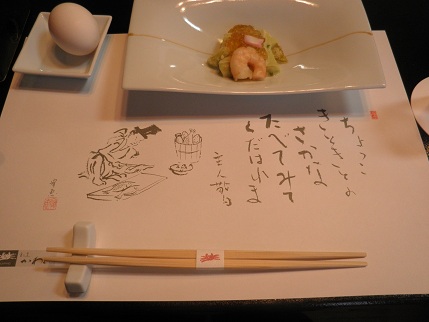 ちょっこ
きときとの
さかな
たべてみて
くだはいま
主人敬白